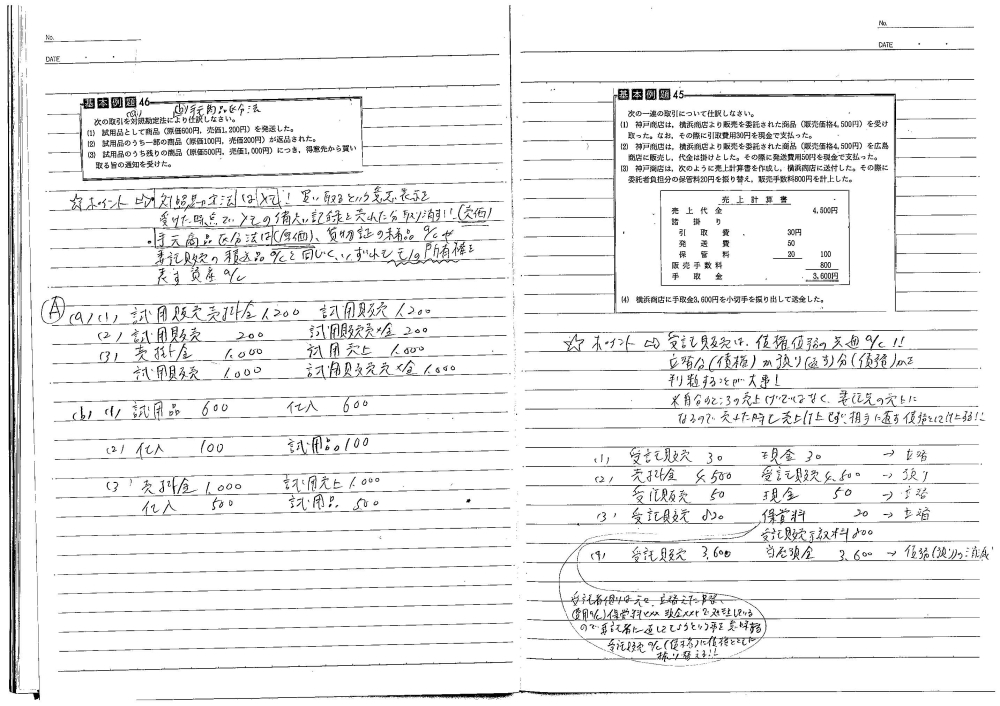 No.
DATE
基本例題 46
(a) (b)手元商品区分法
次の取引を対照勘定法により仕訳しなさい。
(1) 試用品として商品(原価600円、売価1,200円)を発送した。
(2) 試用品のうち一部の商品(原価100円、売価200円)が返品された。
(3) 試用品のうち残りの商品(原価500円、売価1,000円)につき、得意先から買い
取る旨の通知を受けた。
☆ポイント ⇨ 対照勘定法は ! 買い取るという意思表示を
受けた時点で の備忘記録を売れた分取り消す!!(売価)
・手元商品区分法は(原価)、 a/cや
委託販売の積送品a/cと同じく、いずれも 所有権を
表す資産a/c
Ⓐ
(a) (1) 試用販売売掛金 1,200 試用販売 1,200
(2) 試用販売 200 試用販売売掛金 200
(3) 売掛金 1,000 試用売上 1,000
試用販売 1,000 試用販売売掛金 1,000
(b) (1) 試用品 600 仕入 600
(2) 仕入 100 試用品 100
(3) 売掛金 1,000 試用売上 1,000
仕入 500 試用品 500
No.
DATE
基本例題 45
次の一連の取引について仕訳しなさい。
(1) 神戸商店は、横浜商店より販売を委託された商品(販売価格4,500円)を受け
取った。なお、その際に引取費用30円を現金で支払った。
(2) 神戸商店は、横浜商店より販売を委託された商品(販売価格4,500円)を広島
商店に販売し、代金は掛けとした。その際に発送費用50円を現金で支払った。
(3) 神戸商店は、次のように売上計算書を作成し、横浜商店に送付した。その際に
委託者負担分の保管料20円を振り替え、販売手数料800円を計上した。
売上計算書
売上代金 4,500円
諸掛り
引取費 30円
発送費 50
保管料 20 100
販売手数料 800
手取金 3,600円
(4) 横浜商店に手取金3,600円を小切手を振り出して送金した。
☆ ポイント ⇨ 受託販売は、債権債務の a/c!!
立替分(債権)か預り(返す)分(債務)かを
判断することが大事!
売上げではなく、委託先の売上に
なるので売上た時も売上計上せず、相手に返す債務として計上する!!
(1) 受託販売 30 現金 30 → 立替
(2) 売掛金 4,500 受託販売 4,500 → 預り
受託販売 50 現金 50 → 立替
(3) 受託販売 820 保管料 20 → 立替
受託販売手数料 800
(4) 受託販売 3,600 当座預金 3,600 → 債務(預り)の消滅
(費用a/c) 保管料××× 現金×××で処理している
受託販売a/c(貸方)に債権として
振り替える!!